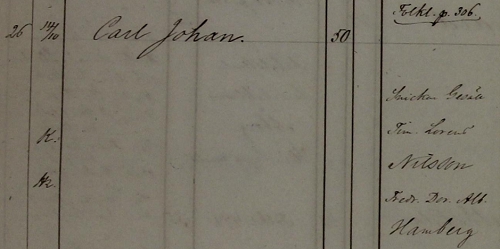 Folkl. p. 306.
26 14/10 Carl Johan. 50
Snickar Gesäll
K. Tim. Lorens
Nilsson
Hr. Fredr. Dor. Alb.
Hamberg